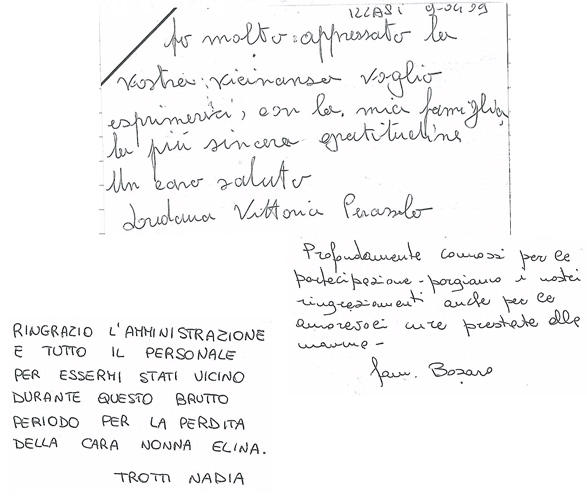 ILLASI 9-04-99
Ho molto appressato la
vostra vicinansa voglio
esprimervi, con la mia famiglia,
la più sincera gratitudine
Un caro saluto
Loredana Vittoria
Profondamente comossi per le
partecipazione - porgiamo i nostri
ringraziamenti anche per le
amorevoli cure prestate alla
mamma -
fam. Bozaro
RINGRAZIO L'AMMINISTRAZIONE
E TUTTO IL PERSONALE
PER ESSERMI STATI VICINO
DURANTE QUESTO BRUTTO
PERIODO PER LA PERDITA
DELLA CARA NONNA ELINA.
TROTTI NADIA